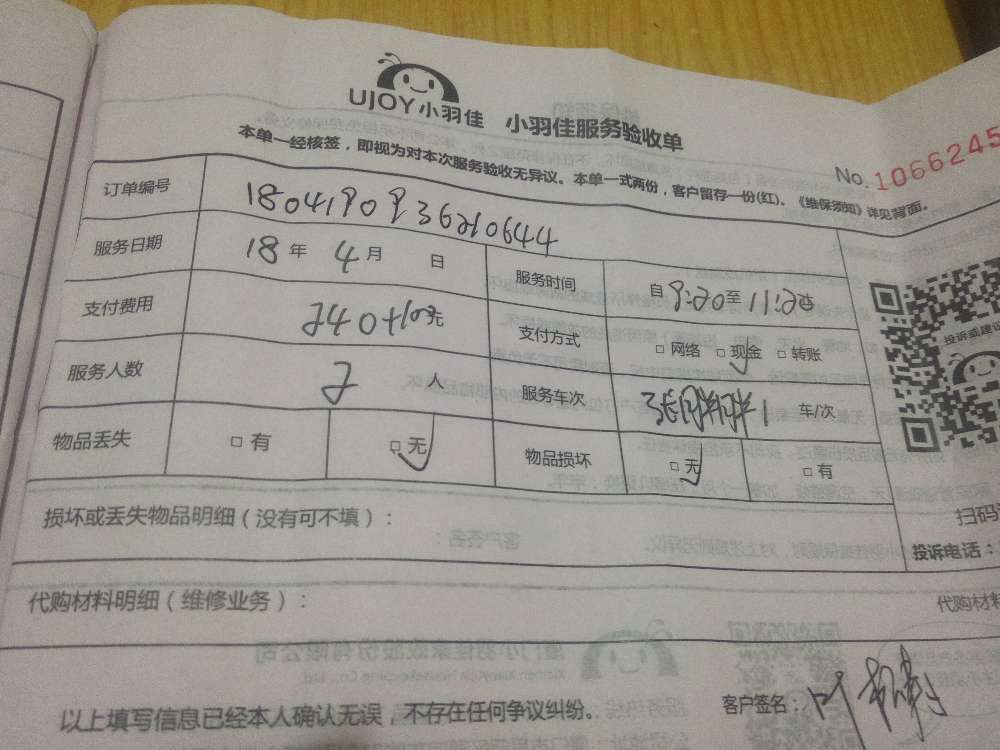 UJOY小羽佳 小羽佳服务验收单
本单一经核签，即视为对本次服务验收无异议。本单一式两份，客户留存一份(红)。《维保须知》详见背面。
No.1066245
订单编号 1804190936210644
服务日期 18年 4月 日 服务时间 自9:20至11:20
支付费用 240+100元 支付方式 □网络 □现金 □转账
服务人数 2人 服务车次 1 车/次
物品丢失 □有 □无 物品损坏 □无 □有
损坏或丢失物品明细（没有可不填）：
投诉或建
扫码
投诉电话：
代购材料明细（维修业务）： 代购材料
以上填写信息已经本人确认无误，不存在任何争议纠纷。 客户签名：叶